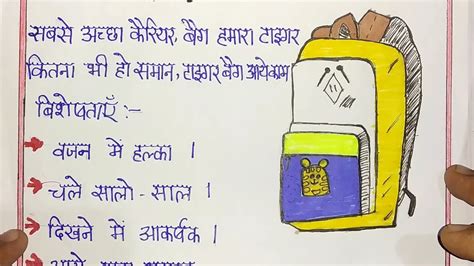 सबसे अच्छा कैरियर, बैग हमारा टाइगर
कितना भी हो समान, टाइगर बैग आये काम
बिशेषताएँ :-
→ वजन में हल्का ।
→ चले सालो-साल ।
→ दिखने में आकर्षक ।